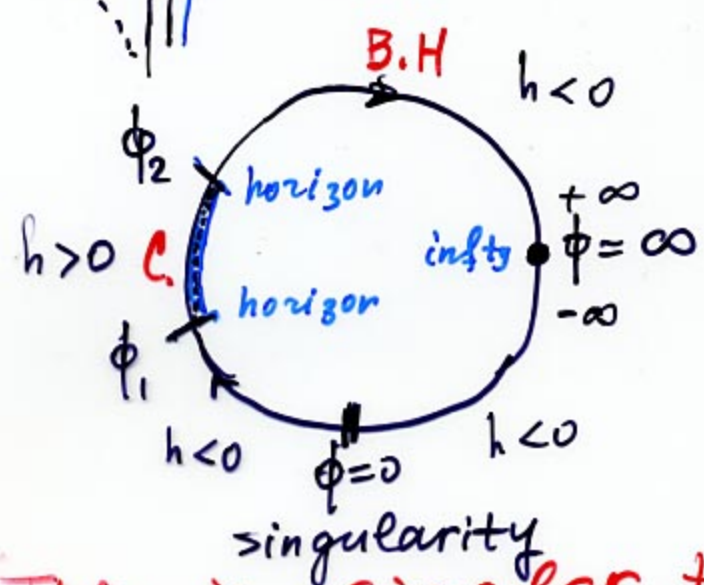 B.H
h<0
ϕ₂
horizon
+∞
h>0 C.
infty ϕ=∞
horizon
-∞
ϕ₁
h<0
h<0
ϕ=0
singularity